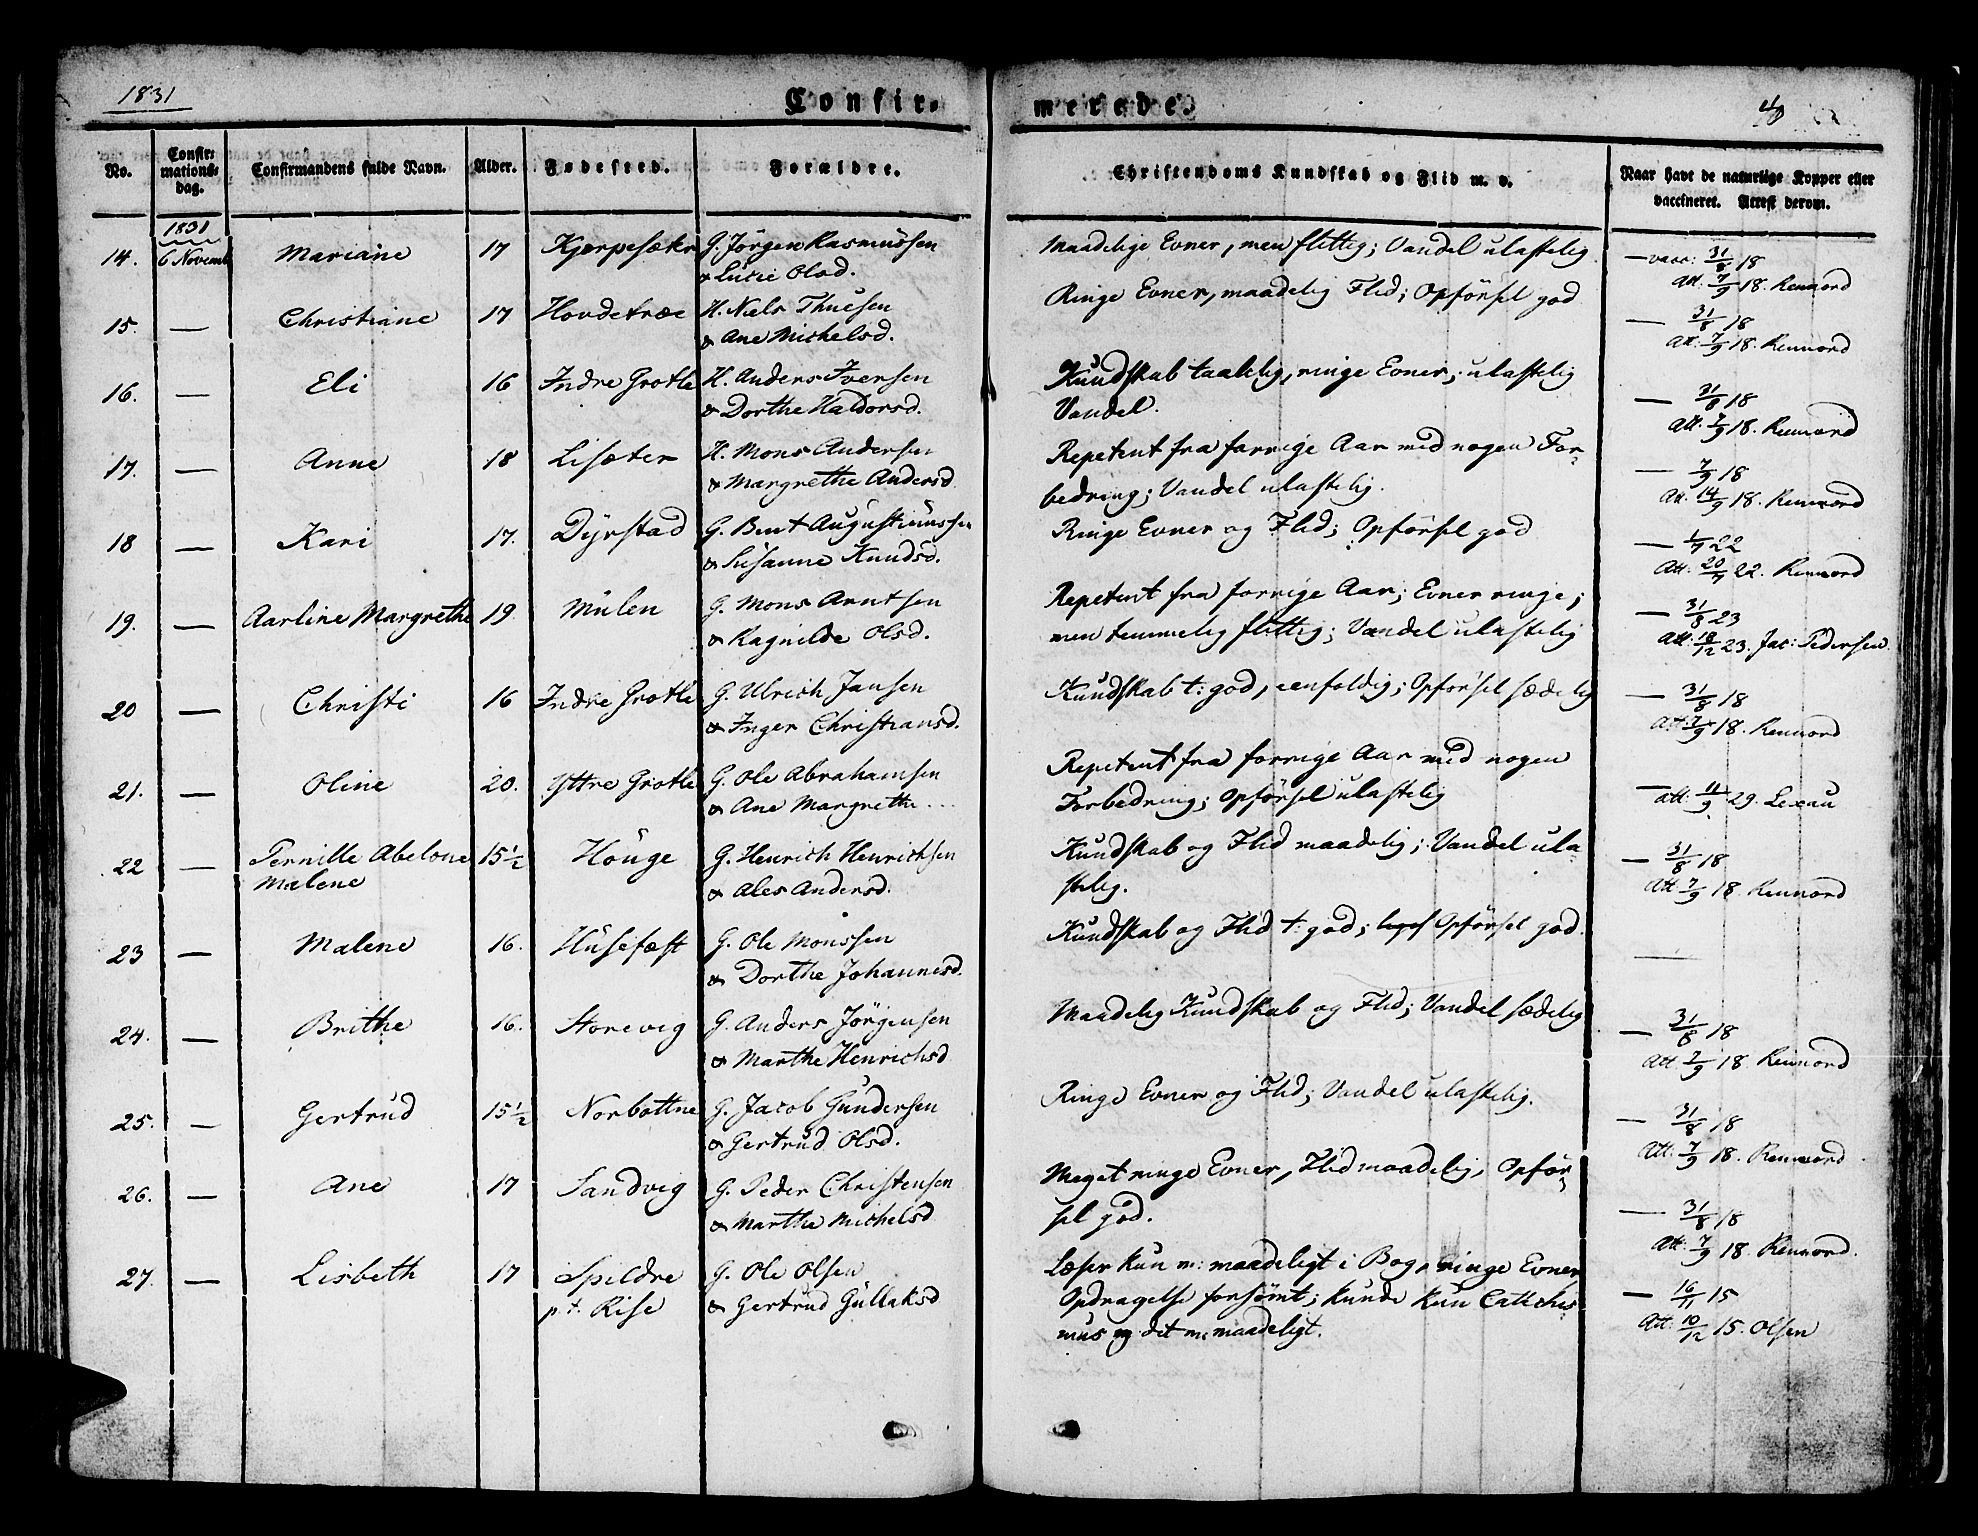 1831
Confir-
merede.
No.
Confir-
mations-
dag.
Confirmandens fulde Navn.
Alder.
Fødested.
Forældre.
Christendoms Kundskab og Flid m. v.
Naar havt de naturlige Kopper eller
vaccineret. Attest derom.
1831
14. 6 Novemb Mariane 17 Kjerpesæter G. Jörgen Rasmusen Maadelige Evner, men flittig; Vandel ulastelig — vacc: 31/8 18
& Lucie Olsd. Att. 7/9 18. Rennord
15. — Christiane 17 Hovdetræe H. Niels Thuesen Ringe Evner, maadelig Flid; Opförsel god — 31/8 18
& Ane Michelsd. Att. 7/9 18. Rennord
16. — Eli 16 Indre Grotle H. Anders Iversen Kundskab taalelig, ringe Evner; ulastelig — 31/8 18
& Dorthe Haldorsd. Vandel. Att. 7/9 18. Rennord
17. — Anne 18 Lisæter H. Mons Andersen Repetent fra forrige Aar med nogen For- — 7/9 18
& Margrethe Andersd. bedring; Vandel ulastelig. Att. 14/9 18. Rennord
18 — Kari 17. Dyrstad G. Bent Augustinussen Ringe Evner og Flid; Opförsel god — 1/7 22
& Susanne Knudsd. Att. 20/7 22. Rennord
19. — Aarline Margrethe 19. Mulen G. Mons Arntsen Repetent fra forrige Aar; Evner ringe; — 31/8 23
& Ragnilde Olsd. men temmelig flittig; Vandel ulastelig Att. 18/12 23. Jac: Pedersen.
20 — Christi 16 Indre Grotle G. Ulrich Jansen Kundskab t: god, eenfoldig; Opförsel sædelig — 31/8 18
& Inger Christiansd. Att 7/9 18. Rennord
21. — Oline 20. Yttre Grotle G. Ole Abrahamsen Repetent fra forrige Aar med nogen
& Ane Margrethe ... Forbedring; Opförsel ulastelig — att: 11/9 29. Lexau
22 — Pernille Abelone 15½ Höuge G. Henrich Henrichsen Kundskab og Flid maadelig; Vandel ula- — 31/8 18
Malene & Ales Andersd. stelig. Att. 7/9 18. Rennord
23 — Malene 16. Husefæst G. Ole Monssen Kundskab og Flid t: god; Opförsel god. —
& Dorthe Johannesd.
24. — Brithe 16. Storevig G. Anders Jörgensen Maadelig Kundskab og Flid; Vandel sædelig — 31/8 18
& Marthe Henrichsd Att. 7/9 18. Rennord
25. — Gertrud 15½ Norbottne G. Jacob Gundersen Ringe Evner og Flid; Vandel ulastelig. — 31/8 18
& Gertrud Olsd. Att. 7/9 18. Rennord
26. — Ane 17 Sandvig G. Peder Christensen Meget ringe Evner, Flid maadelig, Opför- — 31/8 18
& Marthe Michelsd sel god. Att. 7/9 18. Rennord.
27. — Lisbeth 17 Spildre G. Ole Olsen Læser kun m: maadeligt i Bog, ringe Evner — 16/11 15
p.t. Rise & Gertrud Gullaksd Opdragelse forsömt; kunde kun Catechis Att. 10/12 15. Olsen
mus og det m: maadeligt.